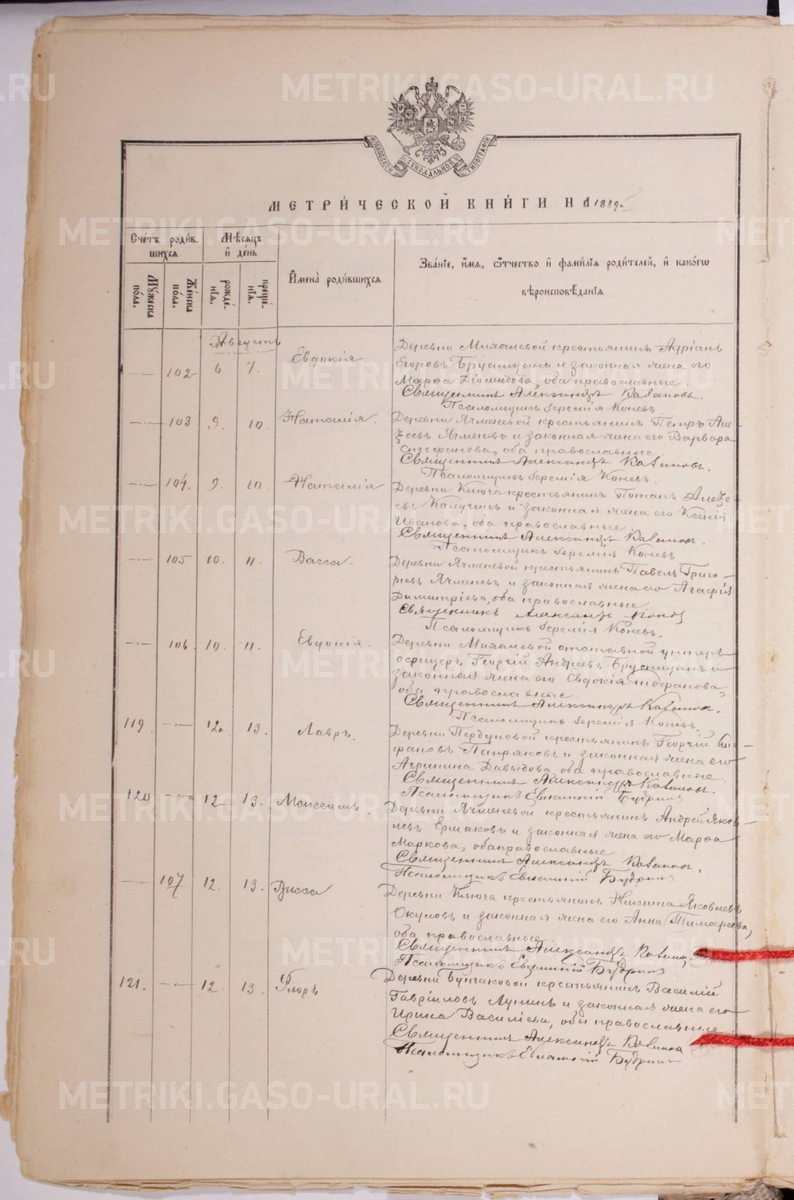 METRIKI.GASO-URAL.RU
МОСКОВСКАЯ СѴНОДАЛЬНОЙ ТИПОГРАФІИ
МЕТРИ́ЧЕСКОЙ КНИ́ГИ НА 1889
Сче́тъ роди́в
шихся
Мѣ́сяцъ
и де́нь
Имена̀ роди́вшихся
Зва́нїе, и́мя, ѻ́тчество и фами́лїя роди́телей, и како́гѡ
вѣроисповѣ́данїя
Мꙋ́жеска по́ла.
Же́нска по́ла.
рожде́нїя.
креще́нїя.
Августъ
102 6 7. Евдокія. Деревни Михалевой крестьянинъ Адріанъ
Егоровъ Брусницынъ и законная жена его
Марѳа Діомидова, оба православные.
Священникъ Александръ
Псаломщикъ Іеремія Коневъ.
103 9. 10. Наталія. Деревни Ячменевой крестьянинъ Петръ Алек
сѣевъ Ячменевъ и законная жена его Варвара
оба православные
Священникъ Александръ
Псаломщикъ Іеремія Коневъ.
104. 9. 10 Наталія Деревни Ключа крестьянинъ Потапъ Алексѣ
евъ и законная жена его Ксенія
Иванова, оба православные
Священникъ Александръ
Псаломщикъ Іеремія Коневъ
105 10. 11. Васса. Деревни Ячменевой крестьянинъ Павелъ Григо
рьевъ Ячменевъ и законная жена его Агафія
Димитріева, оба православные
Священникъ Александръ
Псаломщикъ Іеремія Коневъ.
106. 10. 11. Евдокія. Деревни Михалевой отставной унтеръ
офицеръ Георгій Андреевъ Брусницынъ и
законная жена его Евдокія
оба православные.
Священникъ Александръ
Псаломщикъ Іеремія Коневъ.
119. 12. 13. Лавръ. Деревни крестьянинъ Георгій
и законная жена его
Агрипина Давыдова, оба православные.
Священникъ Александръ
Псаломщикъ Евлампій Будринъ
120 12. 13. Максимъ. Деревни Ячменевой крестьянинъ Андрей Яков
левъ Ермаковъ и законная жена его Марѳа
Маркова, оба православные
Священникъ Александръ
Псаломщикъ Евлампій Будринъ
107 12. 13. Васса Деревни Ключа крестьянинъ Никита Яковлевъ
Окуловъ и законная жена его Анна Тимофеева,
оба православные.
Священникъ Александръ
Псаломщикъ Евлампій Будринъ
121. 12. 13. Флоръ Деревни крестьянинъ Василій
Гавріиловъ Лунинъ и законная жена его
Ирина Василіева, оба православные
Священникъ Александръ
Псаломщикъ Евлампій Будринъ